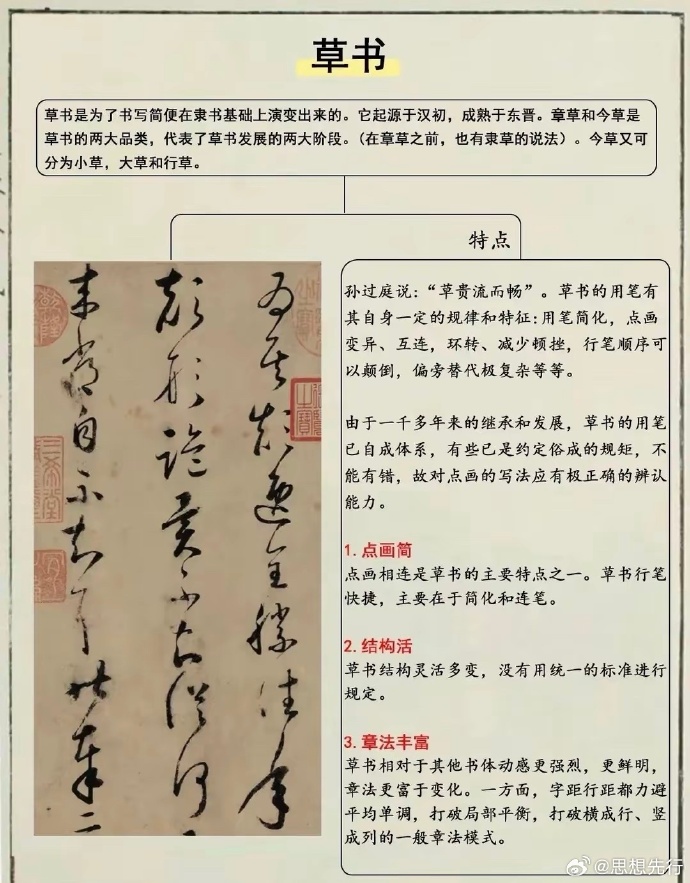 草书
草书是为了书写简便在隶书基础上演变出来的。它起源于汉初，成熟于东晋。章草和今草是
草书的两大品类，代表了草书发展的两大阶段。（在章草之前，也有隶草的说法）。今草又可
分为小草，大草和行草。
特点
孙过庭说：“草贵流而畅”。草书的用笔有
其自身一定的规律和特征：用笔简化，点画
变异、互连，环转、减少顿挫，行笔顺序可
以颠倒，偏旁替代极复杂等等。
由于一千多年来的继承和发展，草书的用笔
已自成体系，有些已是约定俗成的规矩，不
能有错，故对点画的写法应有极正确的辨认
能力。
1.点画简
点画相连是草书的主要特点之一。草书行笔
快捷，主要在于简化和连笔。
2.结构活
草书结构灵活多变，没有用统一的标准进行
规定。
3.章法丰富
草书相对于其他书体动感更强烈，更鲜明，
章法更富于变化。一方面，字距行距都力避
平均单调，打破局部平衡，打破横成行、竖
成列的一般章法模式。
@思想先行